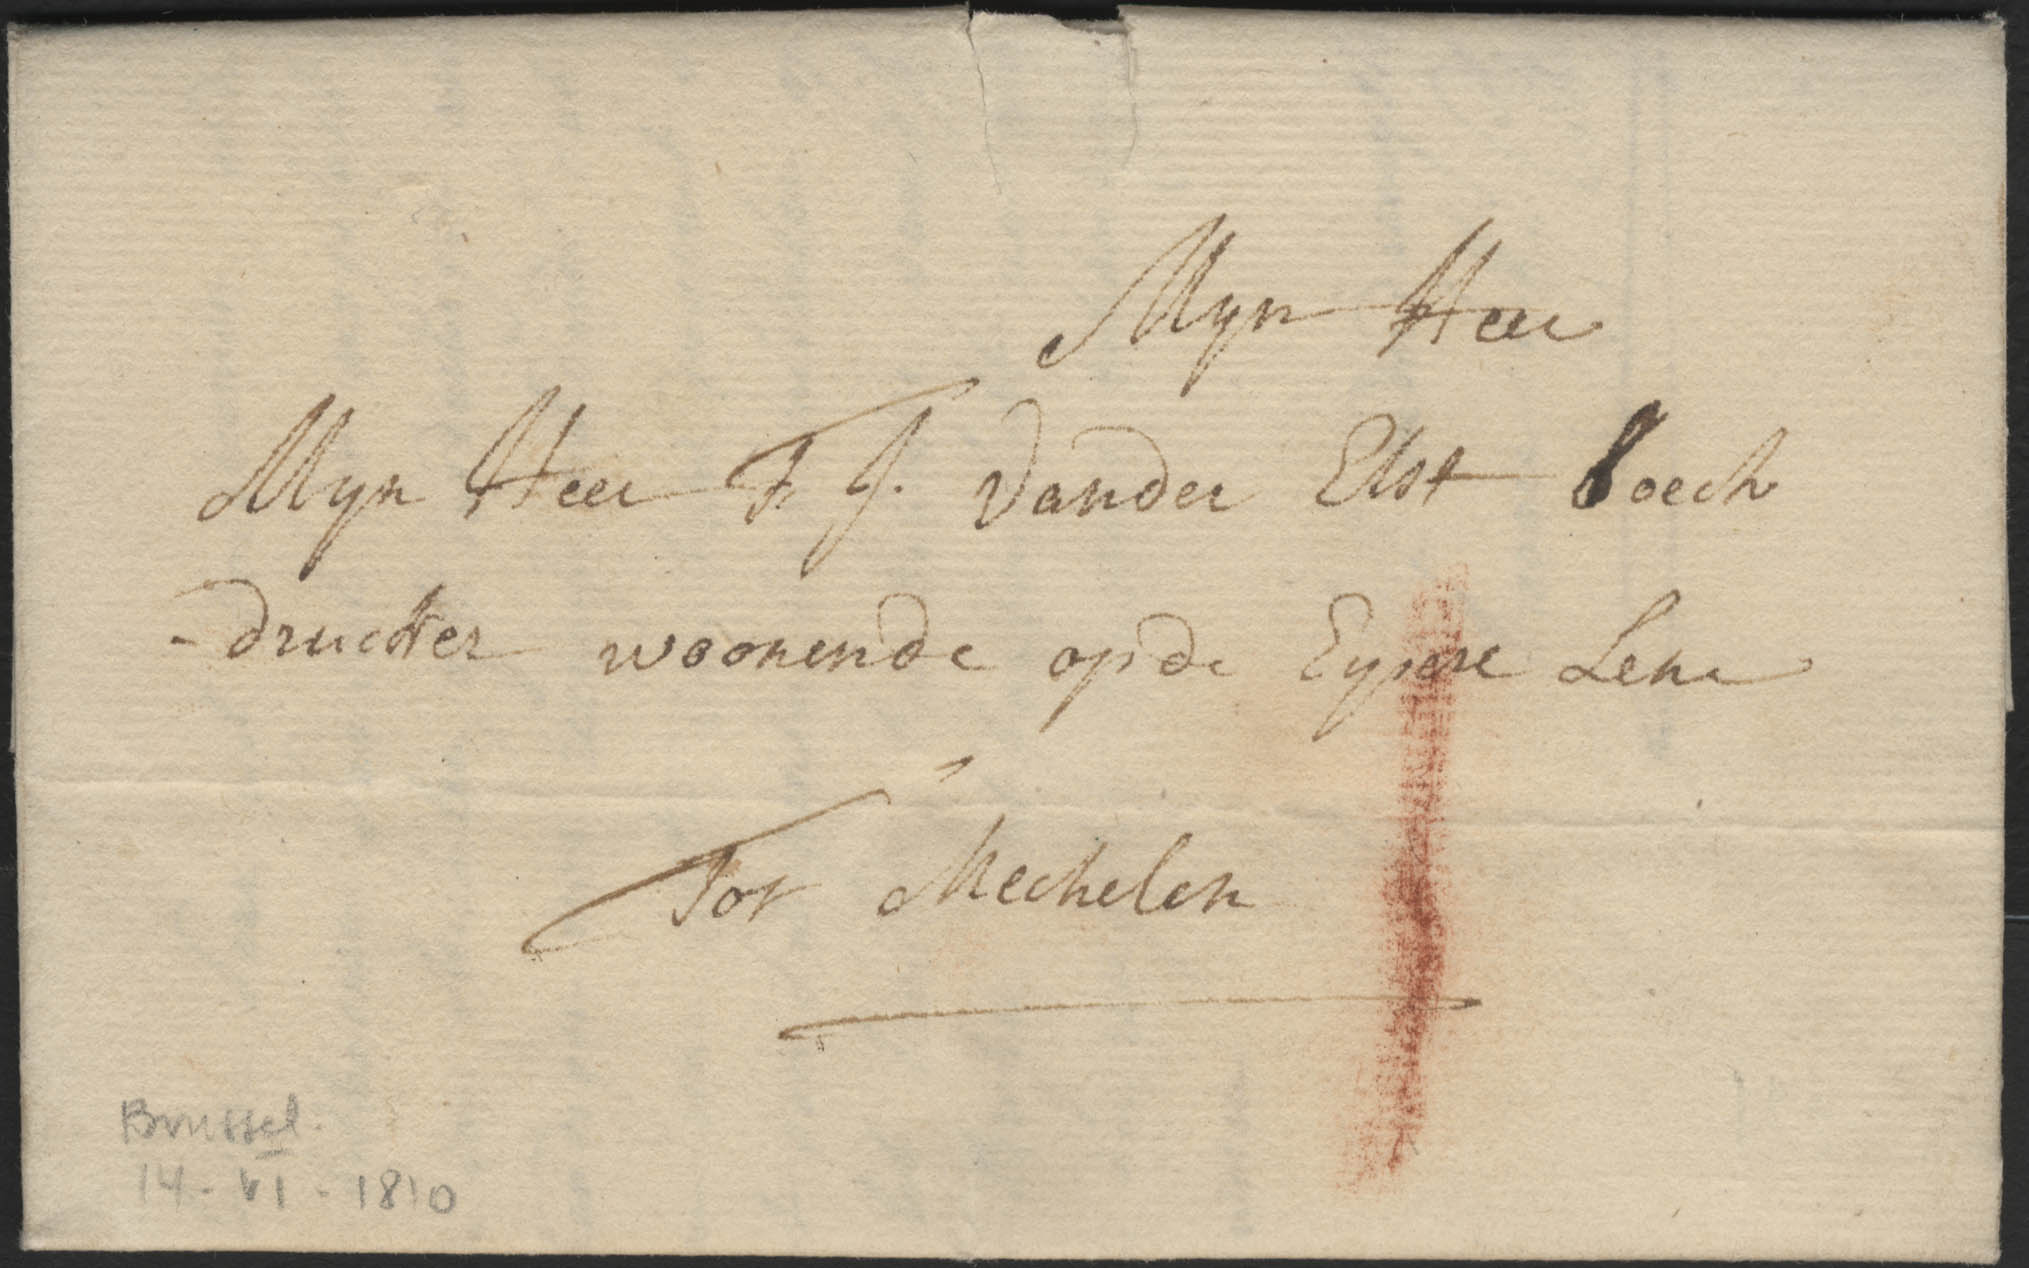 Myn Heer
Myn Heer F. J. Vander Elst boech
-drucker woonende op de Eypere Lene
Tot Mechelen
Brussel.
14-VI-1810